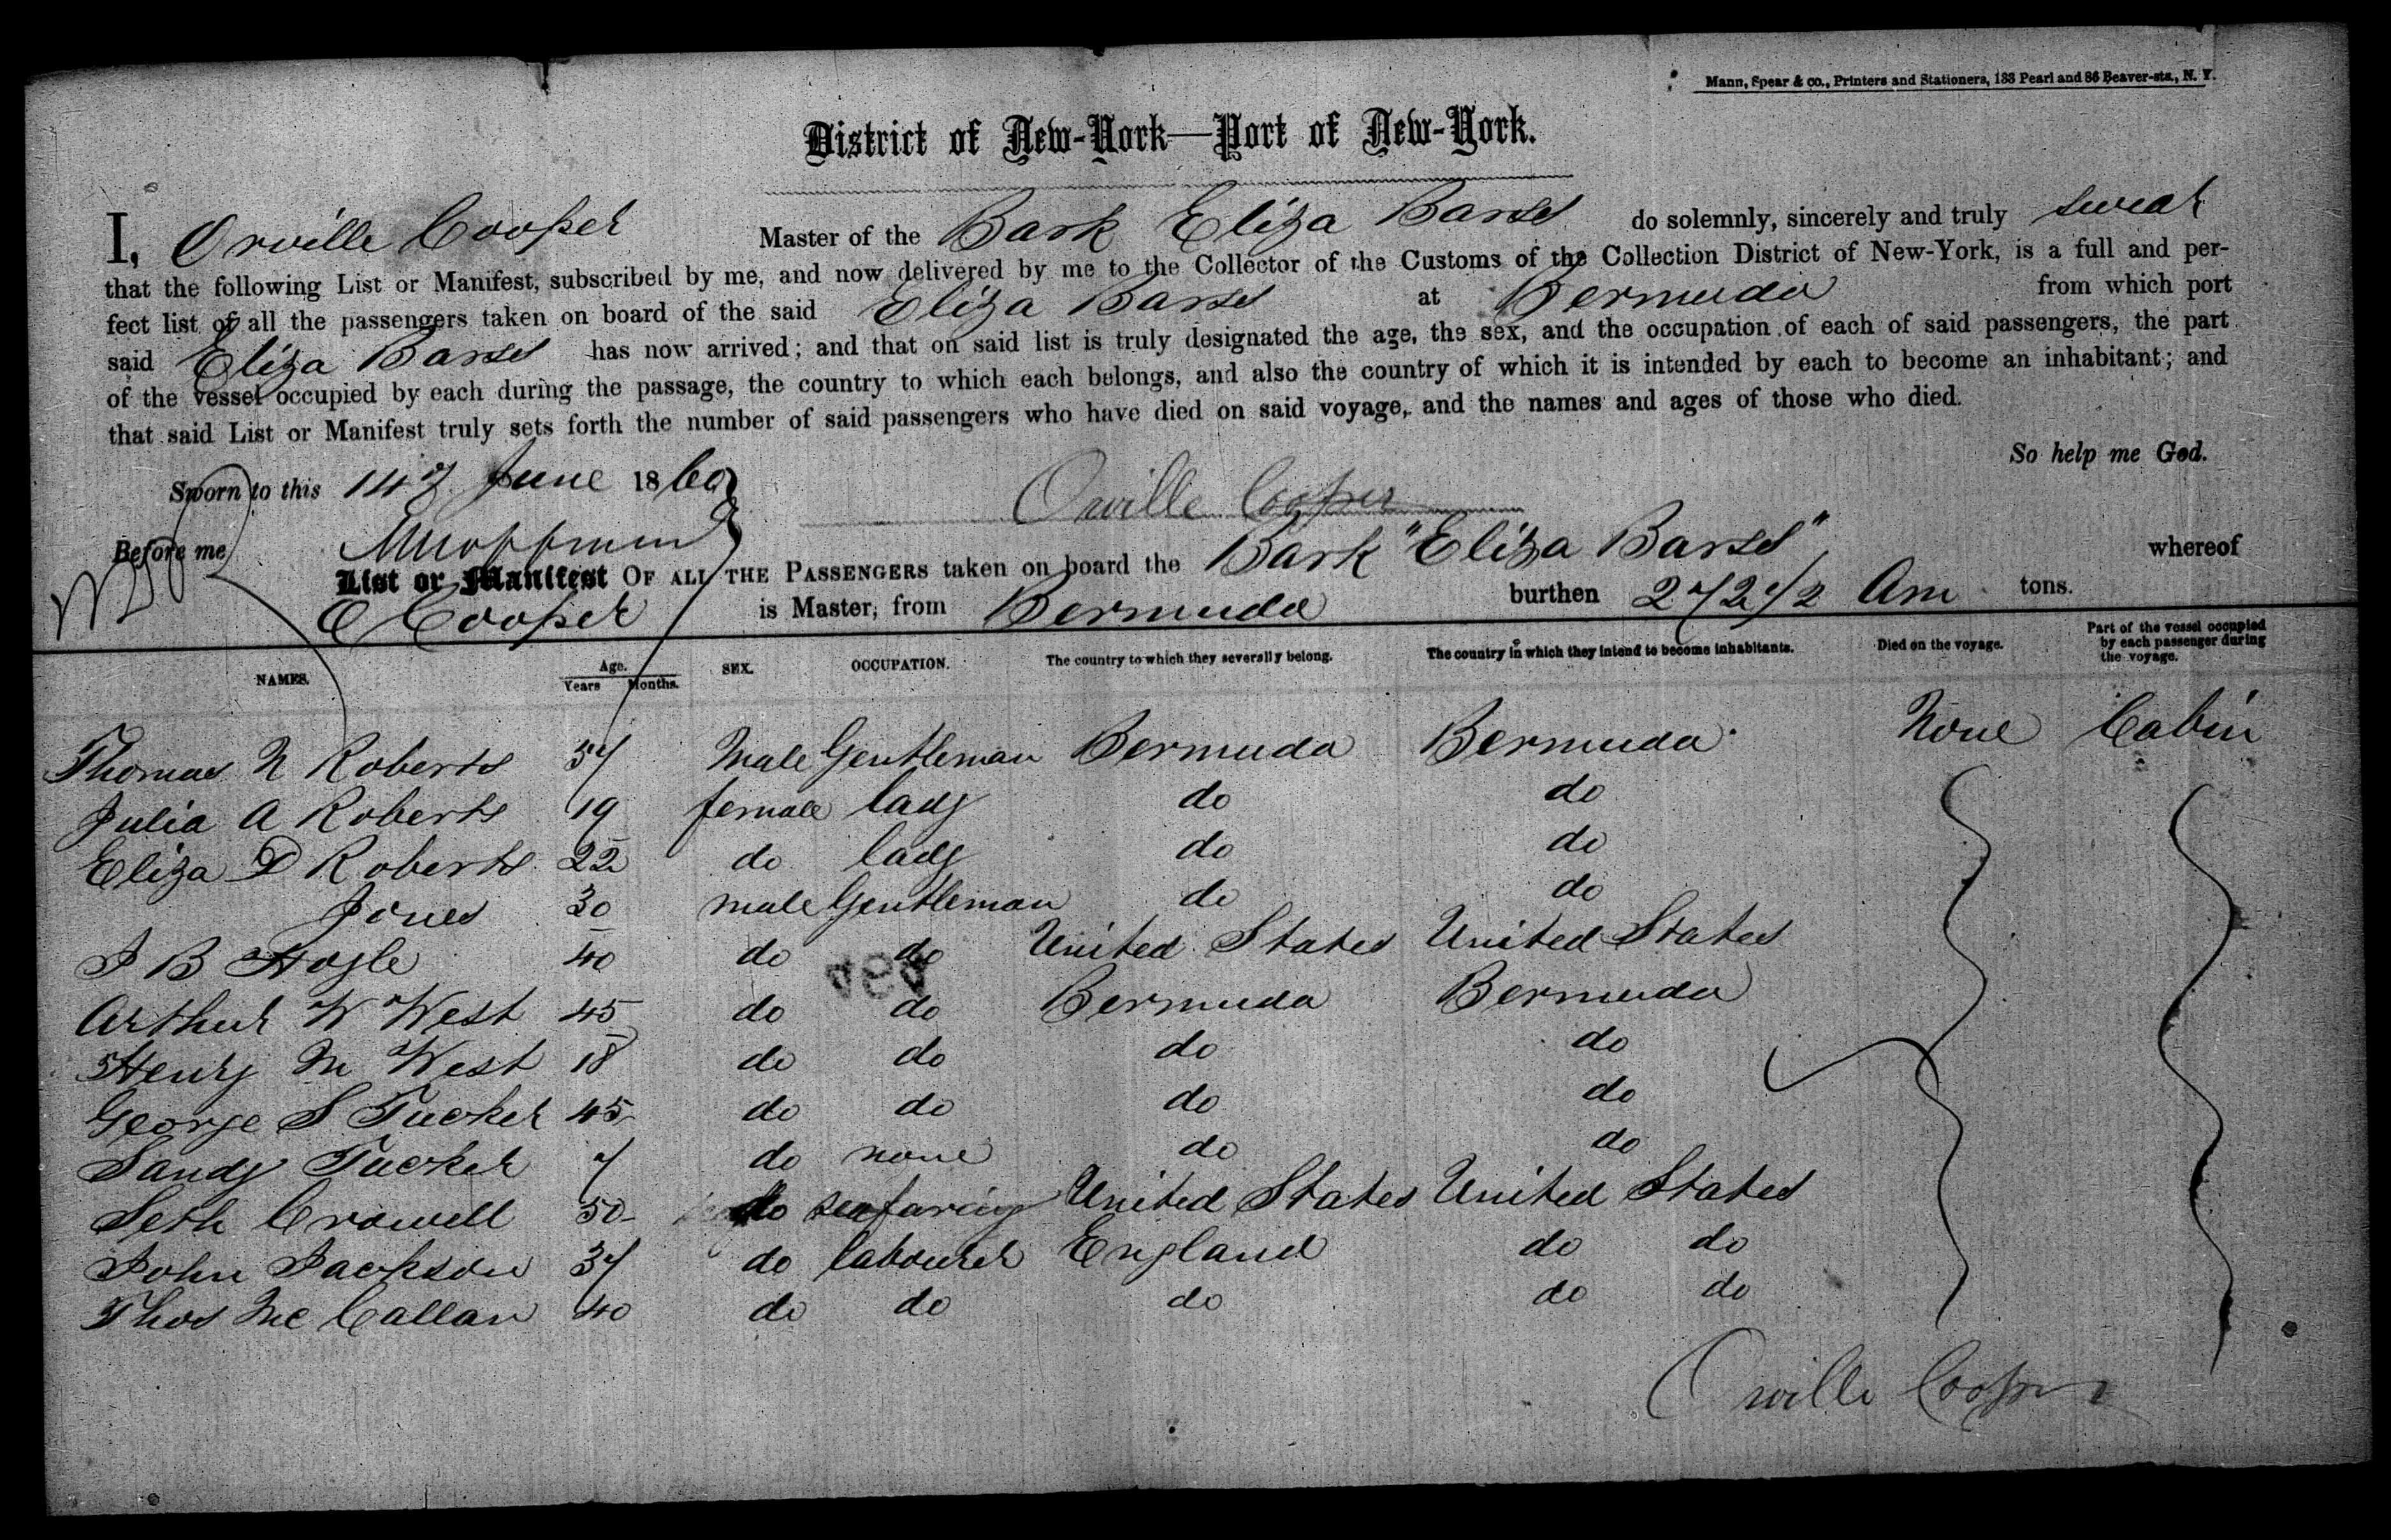 Mann, Spear & co., Printers and Stationers, 133 Pearl and 86 Beaver-sts., N. Y.
District of New-York—Port of New-York.
I, Orville Cooper Master of the Bark Eliza Barss do solemnly, sincerely and truly swear
that the following List or Manifest, subscribed by me, and now delivered by me to the Collector of the Customs of the Collection District of New-York, is a full and per-
fect list of all the passengers taken on board of the said Eliza Barss at Bermuda from which port
said Eliza Barss has now arrived; and that on said list is truly designated the age, the sex, and the occupation of each of said passengers, the part
of the vessel occupied by each during the passage, the country to which each belongs, and also the country of which it is intended by each to become an inhabitant; and
that said List or Manifest truly sets forth the number of said passengers who have died on said voyage, and the names and ages of those who died.
So help me God.
Sworn to this 14 June 1860
Orville Cooper
Before me
List or Manifest OF ALL THE PASSENGERS taken on board the Bark "Eliza Barss" whereof
O Cooper is Master, from Bermuda burthen 272 1/2 Am tons.
NAMES. Age. Years Months. SEX. OCCUPATION. The country to which they severally belong. The country in which they intend to become inhabitants. Died on the voyage. Part of the vessel occupied by each passenger during the voyage.
Thomas N Roberts 37 Male Gentleman Bermuda Bermuda None Cabin
Julia A Roberts 19 female lady do do
Eliza D Roberts 22 do lady do do
Jones 30 male Gentleman do do
J B Hoyle 40 do do United States United States
464
Arthur W West 45 do do Bermuda Bermuda
Henry M West 18 do do do do
George S Tucker 45 do do do do
Sandy Tucker 7 do none do do
Seth Crowell 50 do seafaring United States United States
John Jackson 37 do labourer England do do
Thos McCallan 40 do do do do do
Orville Cooper